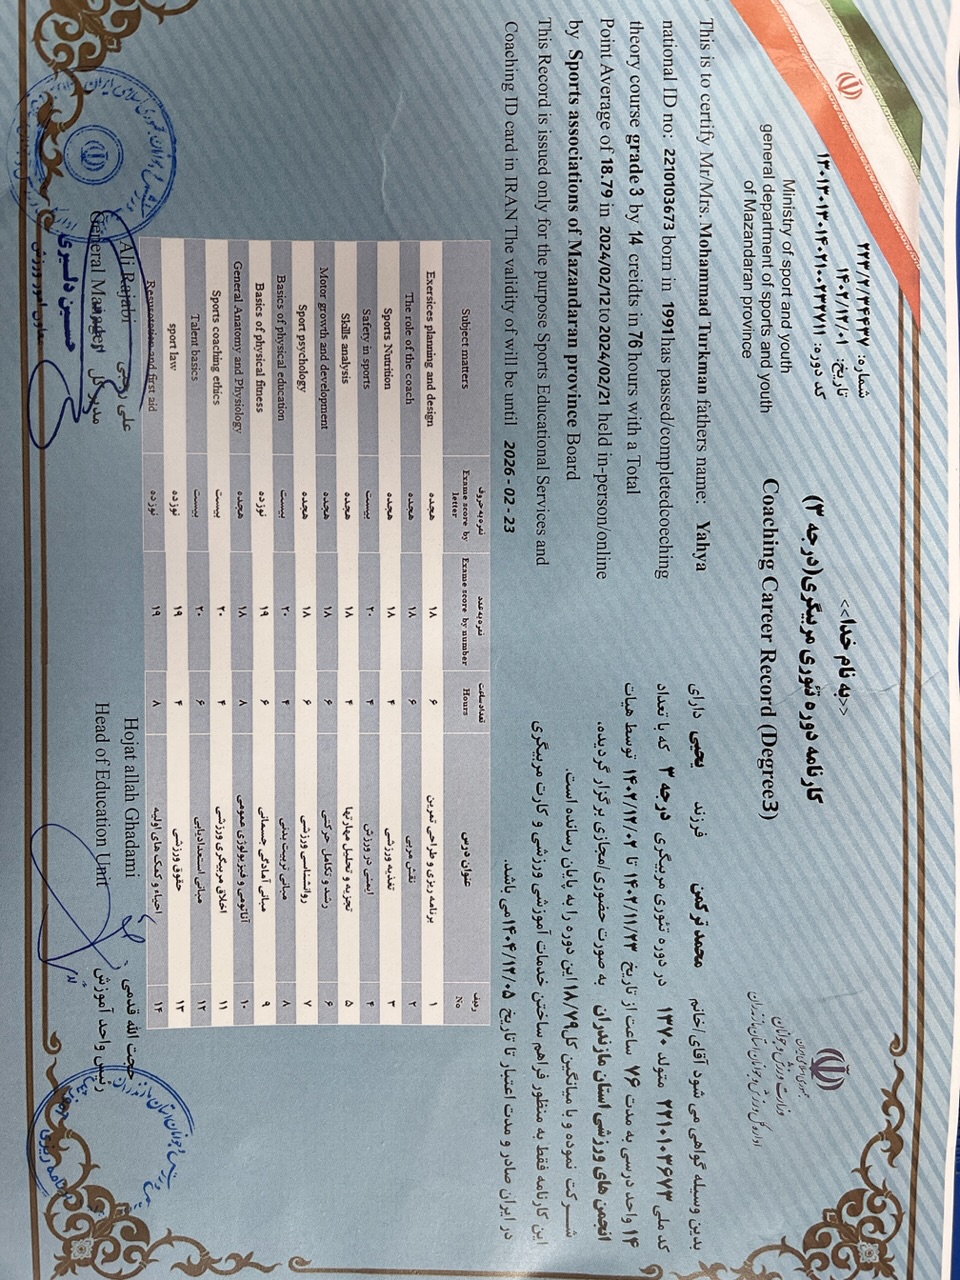 <<به نام خدا>>
کارنامه دوره تئوری مربیگری(درجه ۳)
Coaching Career Record (Degree3)
شماره: ۲۲۳/۲/۳۴۴۳۷
تاریخ: ۱۴۰۲/۱۲/۰۱
کد دوره: ۱۳۰۱۳۰۱۴۰۲۱۰۰۲۳۲۷۱۱
Ministry of sport and youth
general department of sports and youth
of Mazandaran province
جمهوری اسلامی ایران
وزارت ورزش و جوانان
اداره کل ورزش و جوانان استان مازندران
This is to certify Mr/Mrs. Mohammad Turkman fathers name: Yahya
national ID no: 2210103673 born in 1991 has passed/completedcoeching
theory course grade 3 by 14 creidts in 76 hours with a Total
Point Average of 18.79 in 2024/02/12 to 2024/02/21 held in-person/online
by Sports associations of Mazandaran province Board
This Record is issued only for the purpose Sports Educational Services and
Coaching ID card in IRAN The validity of will be until 2026 - 02 - 23
بدین وسیله گواهی می شود آقای/خانم محمد ترکمن فرزند یحیی دارای
کد ملی ۲۲۱۰۱۰۳۶۷۳ متولد ۱۳۷۰ در دوره تئوری مربیگری درجه ۳ که با تعداد
۱۴ واحد درسی به مدت ۷۶ ساعت از تاریخ ۱۴۰۲/۱۱/۲۳ تا ۱۴۰۲/۱۲/۰۲ توسط هیات
انجمن های ورزشی استان مازندران به صورت حضوری/مجازی برگزار گردیده،
شرکت نموده و با میانگین کل ۱۸/۷۹ این دوره را به پایان رسانده است.
این کارنامه فقط به منظور فراهم ساختن خدمات آموزشی ورزشی و کارت مربیگری
در ایران صادر و مدت اعتبار تا تاریخ ۱۴۰۴/۱۲/۰۵ می باشد.
Subject matters نمره به حروف Exame score by letter نمره به عدد Exame score by number تعداد ساعت Hours عنوان درس ردیف No
Exersices planning and design هجده ۱۸ ۶ برنامه ریزی و طراحی تمرین ۱
The role of the coach هجده ۱۸ ۶ نقش مربی ۲
Sports Nutrition هجده ۱۸ ۴ تغذیه ورزشی ۳
Safety in sports بیست ۲۰ ۴ ایمنی در ورزش ۴
Skills analysis هجده ۱۸ ۴ تجزیه و تحلیل مهارتها ۵
Motor growth and development هجده ۱۸ ۶ رشد و تکامل حرکتی ۶
Sport psychology هجده ۱۸ ۶ روانشناسی ورزشی ۷
Basics of physical education بیست ۲۰ ۴ مبانی تربیت بدنی ۸
Basics of physical fitness نوزده ۱۹ ۶ مبانی آمادگی جسمانی ۹
General Anatomy and Physiology هجده ۱۸ ۸ آناتومی و فیزیولوژی عمومی ۱۰
Sports coaching ethics بیست ۲۰ ۴ اخلاق مربیگری ورزشی ۱۱
Talent basics بیست ۲۰ ۶ مبانی استعدادیابی ۱۲
sport law نوزده ۱۹ ۴ حقوق ورزشی ۱۳
Resuscitation and first aid نوزده ۱۹ ۸ احیاء و کمک های اولیه ۱۴
Ali Rajabi علی رجبی
General Manager مدیر کل
حسین دلسیری
معاون امور ورزش
Hojat allah Ghadami حجت الله قدمی
Head of Education Unit رئیس واحد آموزش